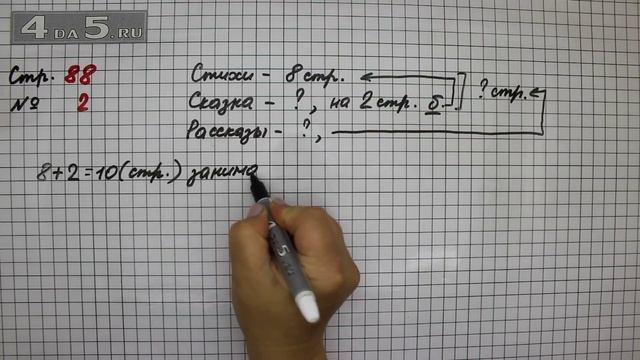 4DA5.RU
Стр. 88
№ 2
Стихи - 8 стр.
Сказка - ?, на 2 стр. б.
? стр.
Рассказы - ?,
8+2=10(стр.) занима